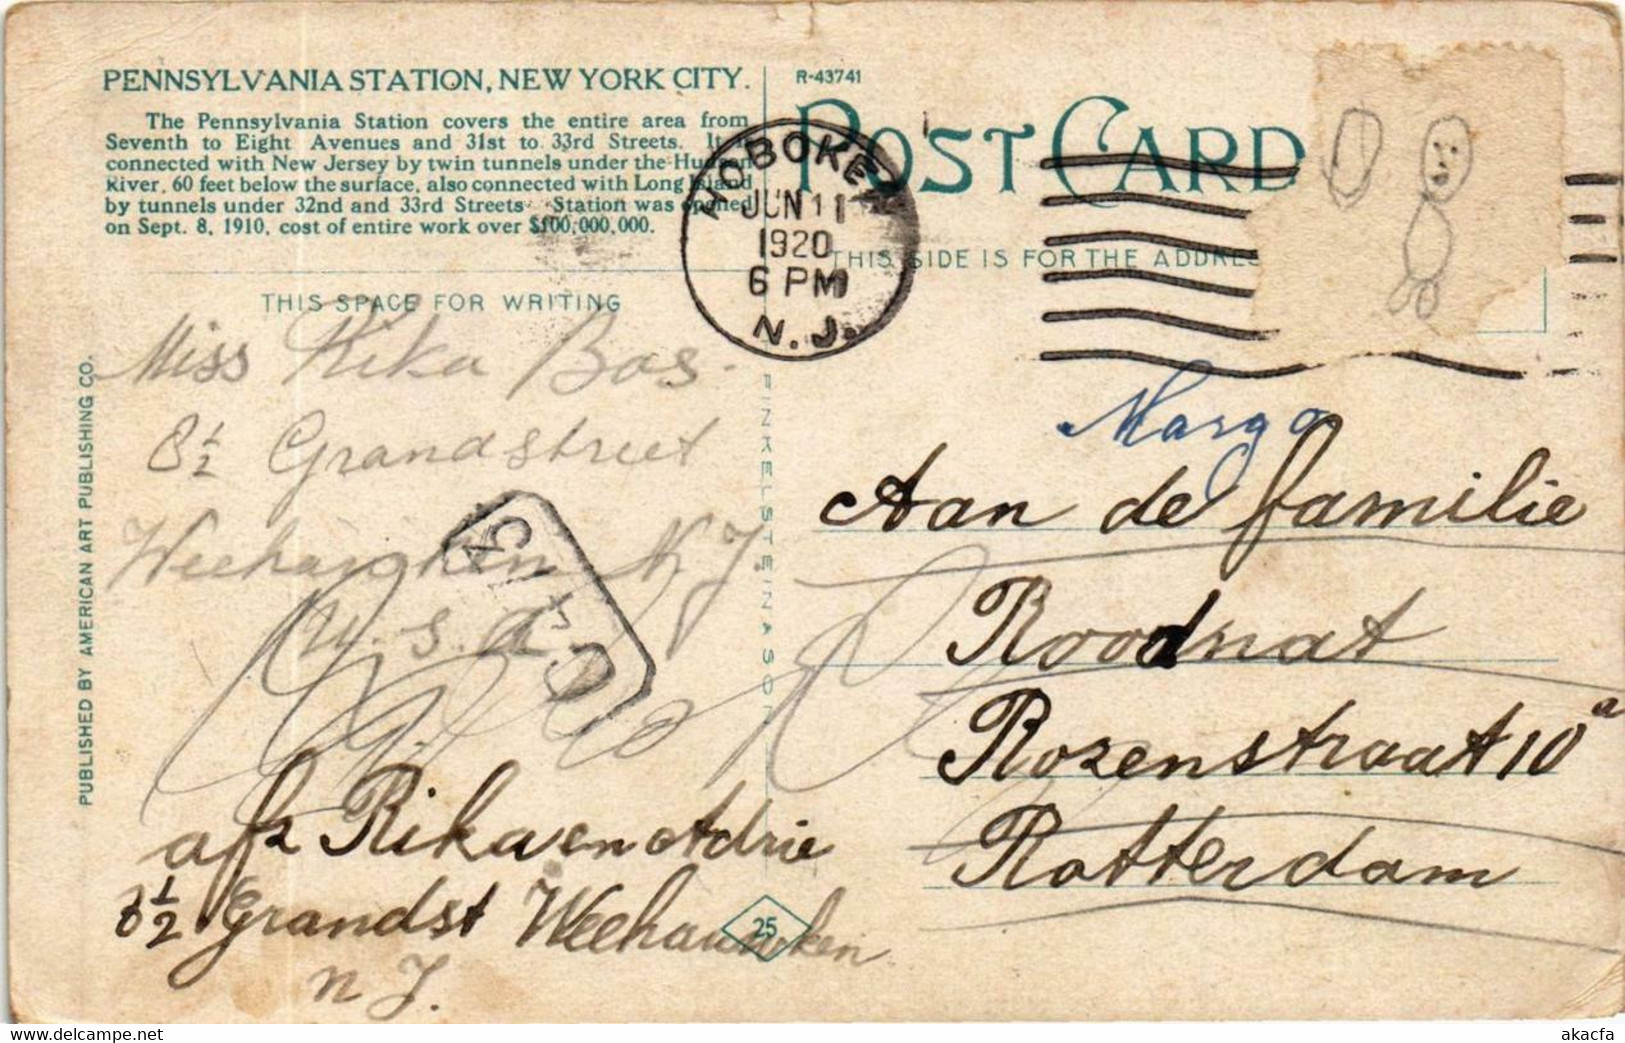 PENNSYLVANIA STATION, NEW YORK CITY.
The Pennsylvania Station covers the entire area from
Seventh to Eight Avenues and 31st to 33rd Streets. It
connected with New Jersey by twin tunnels under the Hudson
River, 60 feet below the surface, also connected with Long Island
by tunnels under 32nd and 33rd Streets Station was opened
on Sept. 8, 1910, cost of entire work over $100,000,000.
R-43741
POST CARD
HOBOKEN
JUN 11
1920
6 PM
N. J.
THIS SIDE IS FOR THE ADDRES
THIS SPACE FOR WRITING
Miss Rika Bos.
8½ Grandstreet
Weehawken N. J.
U. S. A.
PUBLISHED BY AMERICAN ART PUBLISHING CO.
FINKELSTEIN & SON
Margo
Aan de familie
Roodnat
Rozenstraat 10a
Rotterdam
afz Rika en Adrie
8½ Grandst Weehawken
N J.
25
akacfa
akacfa.com